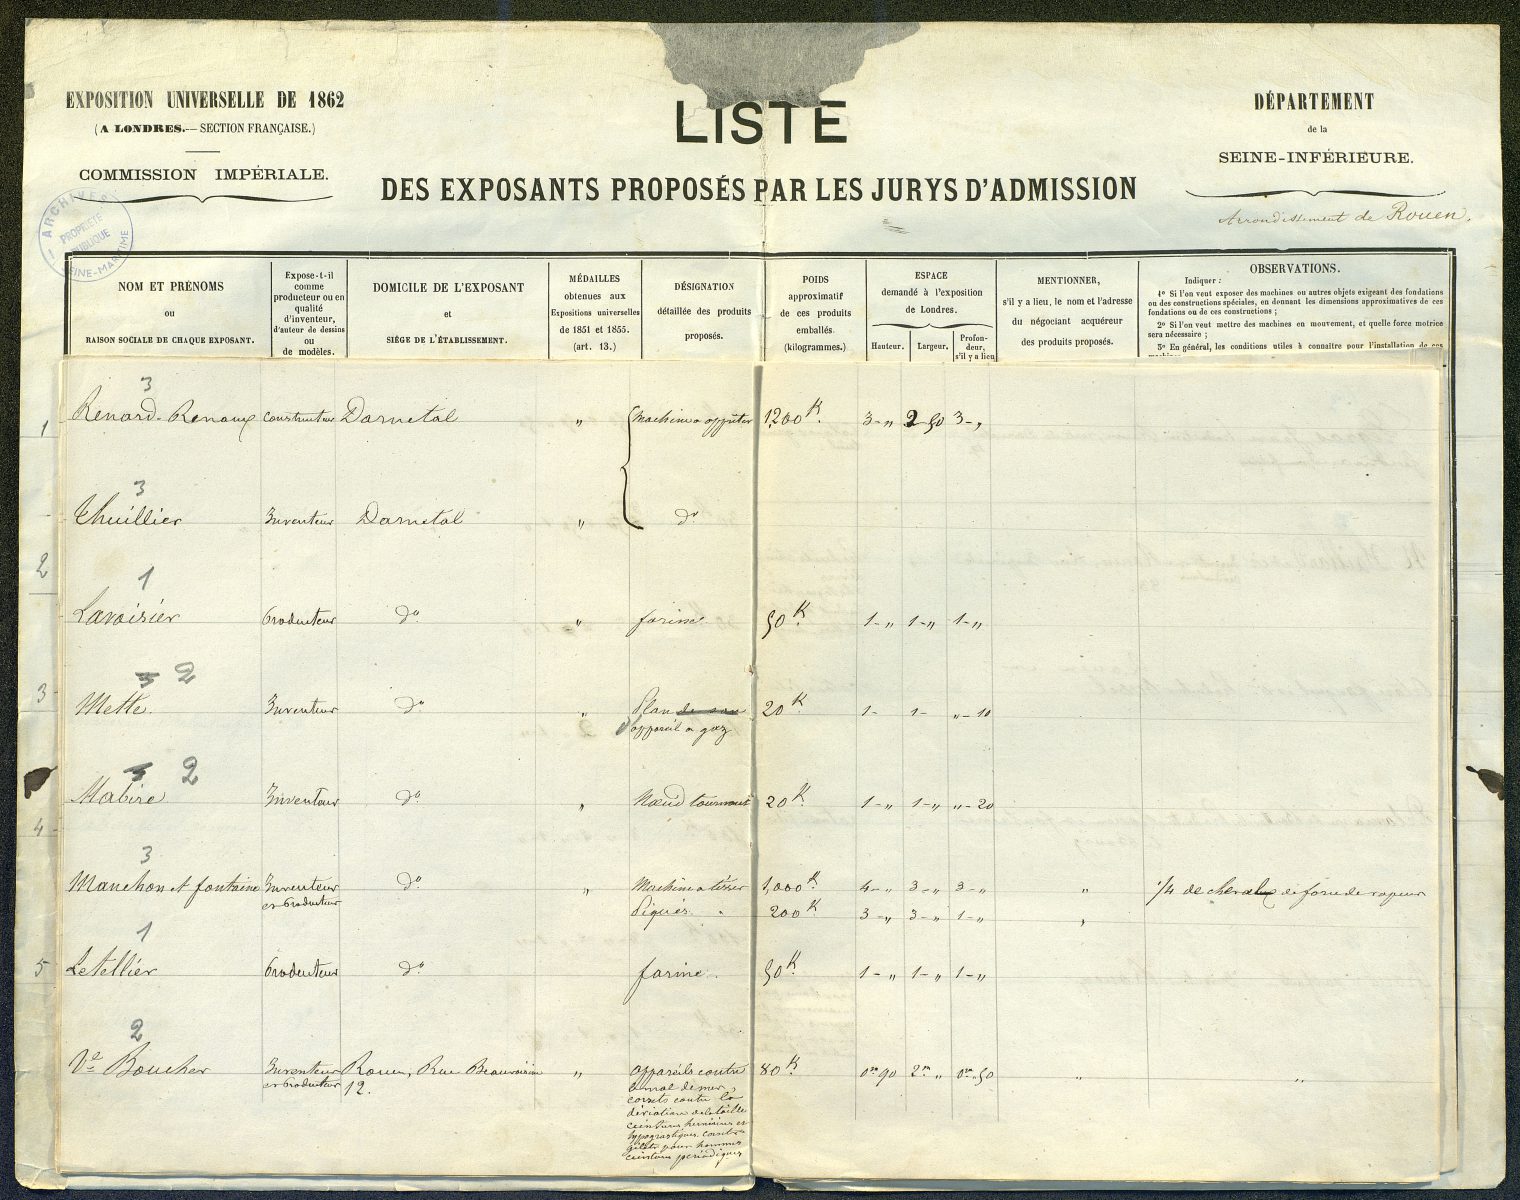 EXPOSITION UNIVERSELLE DE 1862
(A LONDRES.— SECTION FRANÇAISE.)
COMMISSION IMPÉRIALE.
ARCHIVES
PROPRIÉTÉ
PUBLIQUE
SEINE-MARITIME
LISTE
DES EXPOSANTS PROPOSÉS PAR LES JURYS D'ADMISSION
DÉPARTEMENT
de la
SEINE-INFÉRIEURE.
Arrondissement de Rouen.
NOM ET PRÉNOMS
ou
RAISON SOCIALE DE CHAQUE EXPOSANT.
Expose-t-il
comme
producteur ou en
qualité
d'inventeur,
d'auteur de dessins
ou
de modèles.
DOMICILE DE L'EXPOSANT
et
SIÉGE DE L'ÉTABLISSEMENT.
MÉDAILLES
obtenues aux
Expositions universelles
de 1851 et 1855.
(art. 13.)
DÉSIGNATION
détaillée des produits
proposés.
POIDS
approximatif
de ces produits
emballés.
(kilogrammes.)
ESPACE
demandé à l'exposition
de Londres.
Hauteur.
Largeur.
Profon-
deur,
s'il y a lieu
MENTIONNER,
s'il y a lieu, le nom et l'adresse
du négociant acquéreur
des produits proposés.
OBSERVATIONS.
Indiquer :
1° Si l'on veut exposer des machines ou autres objets exigeant des fondations
ou des constructions spéciales, en donnant les dimensions approximatives de ces
fondations ou de ces constructions ;
2° Si l'on veut mettre des machines en mouvement, et quelle force motrice
sera nécessaire ;
3° En général, les conditions utiles à connaître pour l'installation de ces
3
1 Renard-Renaux constructeur Darnetal " Machine a 1200 K. 3 - " 2 - 50 3 - "
3
Thuillier Inventeur Darnetal " d°
2
1
Lavoisier Producteur d° " farine 50 K. 1 - " 1 - " 1 - "
3 2
3
Mette. Inventeur d° " Plan de 20 K. 1 - 1 - " - 10
appareil a gaz
3 2
Mabire Inventeur d° " Nœud tournant 20 K. 1 - " 1 - " " - 20
4
3
Manchon et fontaine Inventeur d° " Machine a tisser 1,000 K. 4 - " 3 - " 3 - " " 1/4 de cheval de force de vapeur
et Producteur Piqués. 200 K 3 - " 3 - " 1 - " "
1
5 Letellier Producteur d° farine. 50 K. 1 - " 1 - " 1 - "
2
Ve Boucher Inventeur Rouen, Rue Beauvoisine " appareils contre 80 K. 0m 90 2m " 0m 50 " "
et Producteur 12. le mal de mer,
corsets contre la
déviation de la taille
ceintures herniaires et
hypogastriques corsets
gilets pour hommes
ceintures périodiques